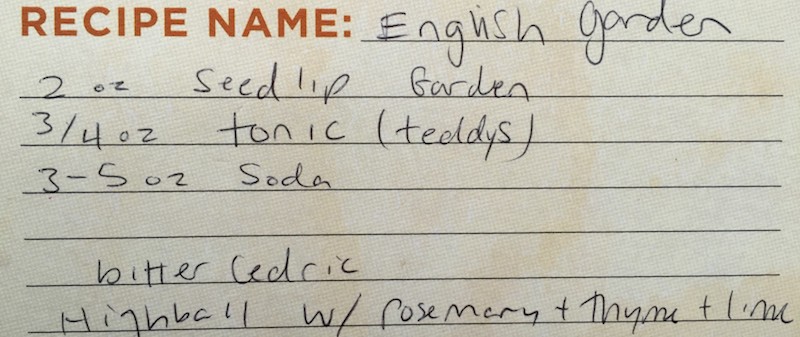 RECIPE NAME: English Garden
2 oz Seedlip Garden
3/4 oz tonic (teddys)
3-5 oz Soda
bitter Cedric
Highball w/ rosemary + thyme + lime